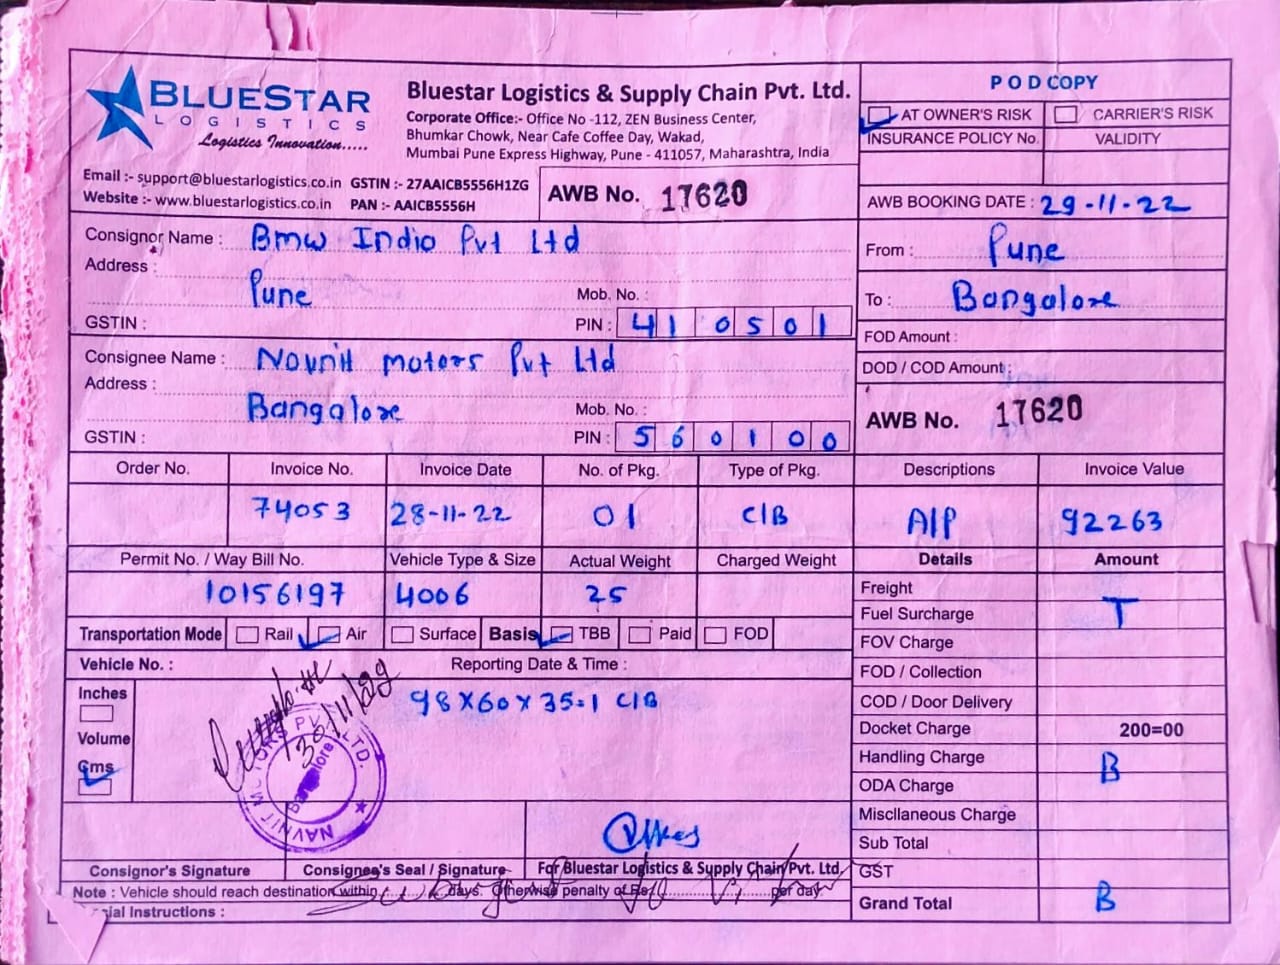 BLUESTAR
LOGISTICS
Logistics Innovation.....
Bluestar Logistics & Supply Chain Pvt. Ltd.
Corporate Office:- Office No -112, ZEN Business Center,
Bhumkar Chowk, Near Cafe Coffee Day, Wakad,
Mumbai Pune Express Highway, Pune - 411057, Maharashtra, India
POD COPY
AT OWNER'S RISK CARRIER'S RISK
INSURANCE POLICY No. VALIDITY
Email :- support@bluestarlogistics.co.in GSTIN :- 27AAICB5556H1ZG
Website :- www.bluestarlogistics.co.in PAN :- AAICB5556H
AWB No. 17620
AWB BOOKING DATE : 29-11-22
Consignor Name : Bmw Indio Pvt Ltd
Address :
Pune
Mob. No. :
GSTIN : PIN : 410501
From : Pune
To : Bangalore
FOD Amount :
DOD / COD Amount :
Consignee Name : Novnit motors Pvt Ltd
Address :
Bangalore
Mob. No. :
GSTIN : PIN : 560100
AWB No. 17620
Order No. Invoice No. Invoice Date No. of Pkg. Type of Pkg. Descriptions Invoice Value
74053 28-11-22 01 C/B A/P 92263
Permit No. / Way Bill No. Vehicle Type & Size Actual Weight Charged Weight Details Amount
10156197 4006 25
Freight
Fuel Surcharge T
FOV Charge
FOD / Collection
COD / Door Delivery
Docket Charge 200=00
Handling Charge B
ODA Charge
Miscllaneous Charge
Sub Total
GST
Grand Total B
Transportation Mode Rail Air Surface Basis TBB Paid FOD
Vehicle No. : Reporting Date & Time :
Inches
Volume
Cms
98X60X35=1 C/B
NAVNIT MOTORS PVT. LTD.
Bangalore
Consignor's Signature Consignee's Seal / Signature For Bluestar Logistics & Supply Chain Pvt. Ltd.
Note : Vehicle should reach destination within days. Otherwise penalty of Rs. per day
Instructions :